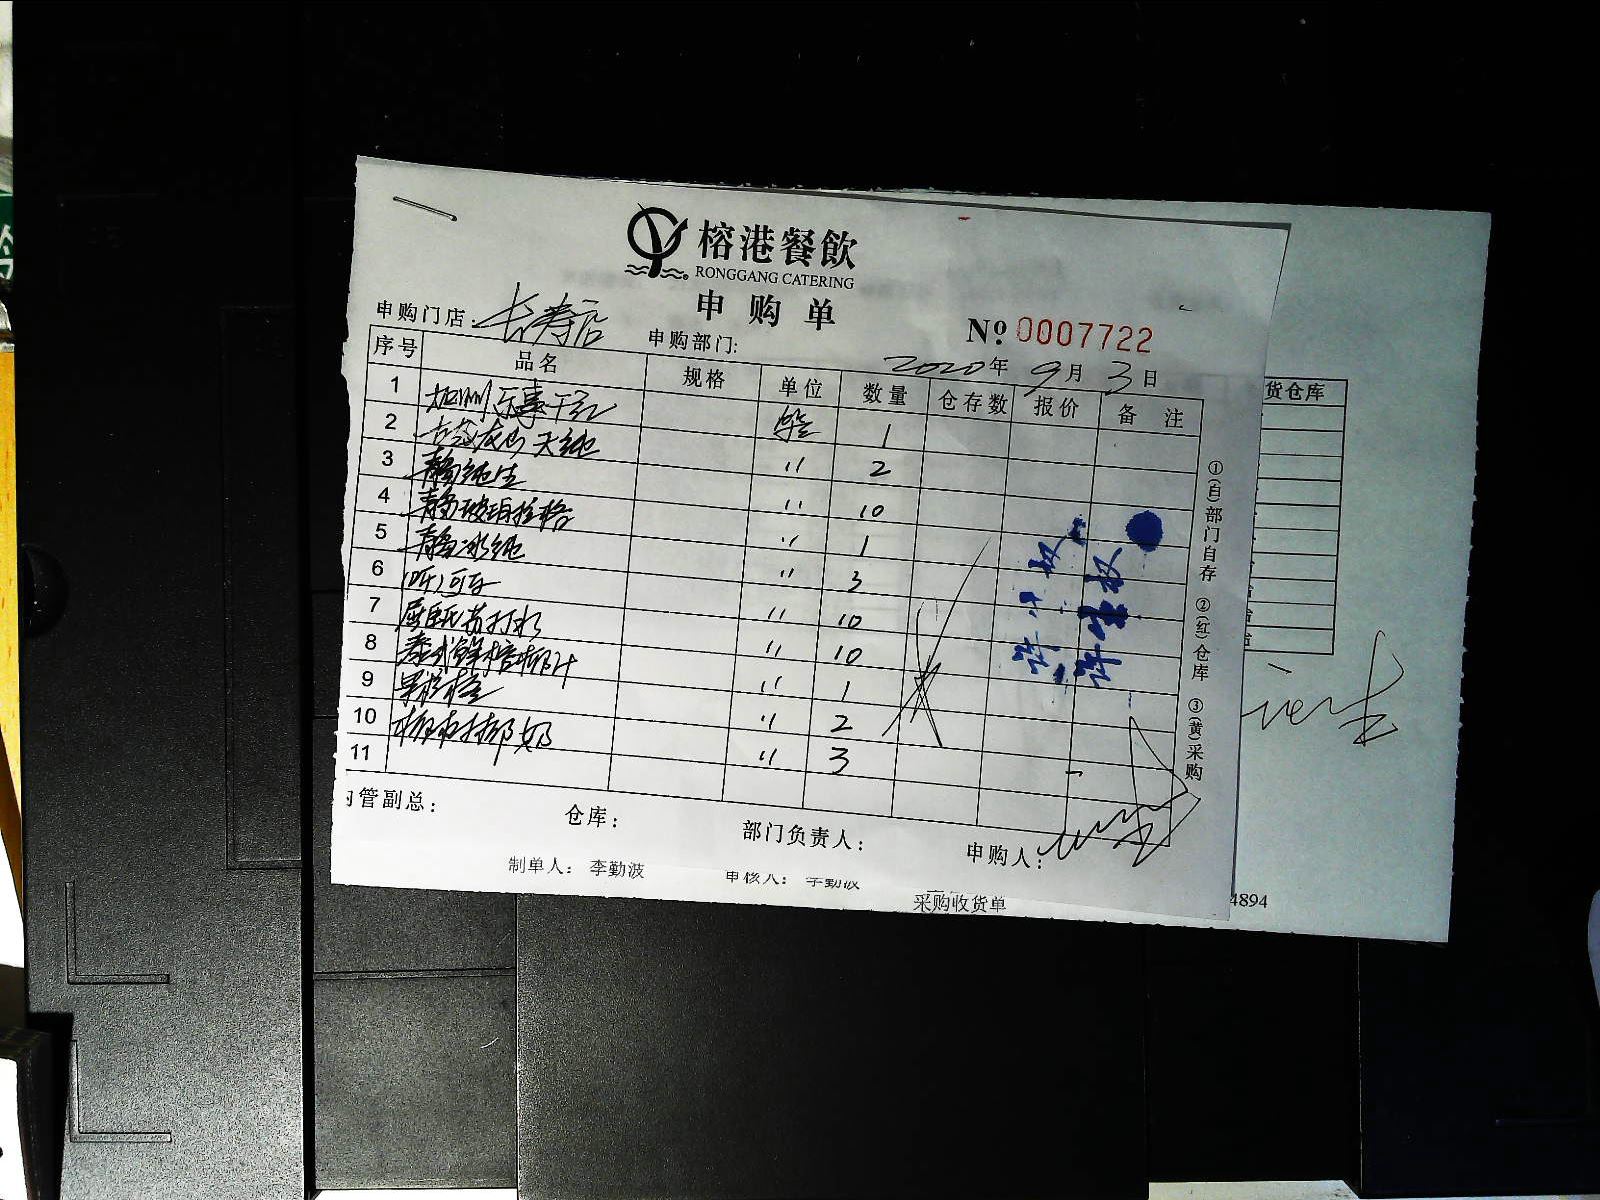 榕港餐飲
RONGGANG CATERING
申购单
申购门店: 长寿店
申购部门:
№ 0007722
2020年9月3日
序号 品名 规格 单位 数量 仓存数 报价 备注
1 加州乐事干红 1
2 天纯 " 2
3 青岛纯生 " 10
4 青岛 " 1
5 青岛冰纯 " 3
6 (听)可乐 " 10
7 屈臣氏苏打水 " 10
8 " 1
9 果粒橙 " 2
10 " 3
11
①(白)部门自存 ②(红)仓库 ③(黄)采购
管副总:
仓库:
部门负责人:
申购人:
制单人: 李勤波
审核人: 李勤波
采购收货单
货仓库
4894